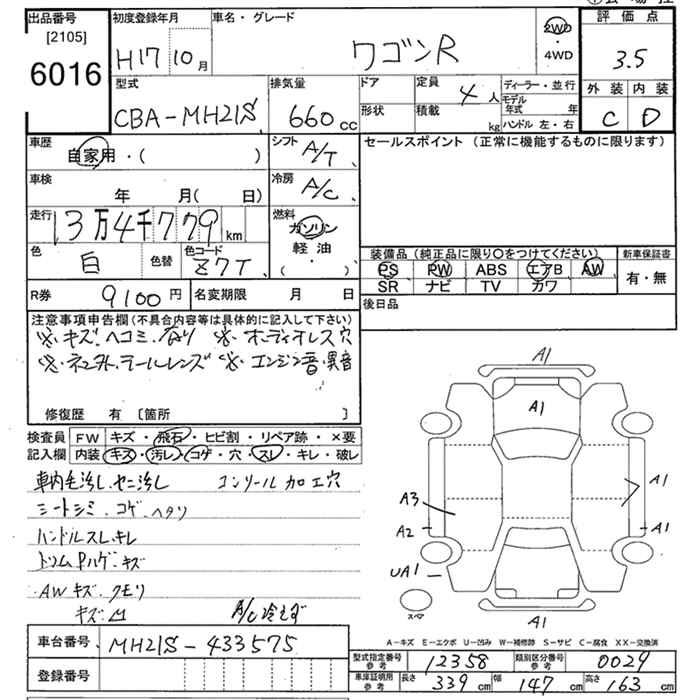 出品番号 初度登録年月 車名・グレード 2WD・4WD 評価点
[2105]
6016 H17 10月 ワゴンR 3.5
型式 排気量 ドア 定員 4人 ディーラー・並行 外装 内装
CBA-MH21S 660cc 形状 積載 kg モデル年式 年 C D
ハンドル 左・右
車歴 自家用・( ) シフト A/T セールスポイント (正常に機能するものに限ります)
車検 年 月( 日) 冷房 A/C
走行 13万4千779km 燃料 ガソリン
軽油
・( )
色 白 色替 色コード Z7T 装備品 (純正品に限り○をつけてください) 新車保証書
PS PW ABS エアB AW 有・無
SR ナビ TV カワ
R券 9100円 名変期限 月 日 後日品
注意事項申告欄(不具合内容等は具体的に記入して下さい)
キズ、ヘコミ、有り オーディオレス穴
テールレンズ エンジン音・異音
修復歴 有 [箇所 ]
検査員 FW キズ・飛石・ヒビ割・リペア跡・×要
記入欄 内装 キズ・汚レ・コゲ・穴・スレ・キレ・破レ
車内毛汚し、ヤニ汚し コンソール加工穴
シートシミ・コゲ・ヘタリ
ハンドルスレ、キレ
トリムPハゲ・キズ
AWキズ・クモリ
A/C冷えず
A1
A1
A3
A2
UA1
A1
A1
A1
スペア
A-キズ E-エクボ U-凹み W-補修跡 S-サビ C-腐食 XX-交換済
車台番号 MH21S-433575
登録番号
型式指定番号 参考 12358 類別区分番号 参考 0029
車庫証明用 参考 長さ 339cm 幅 147cm 高さ 163cm